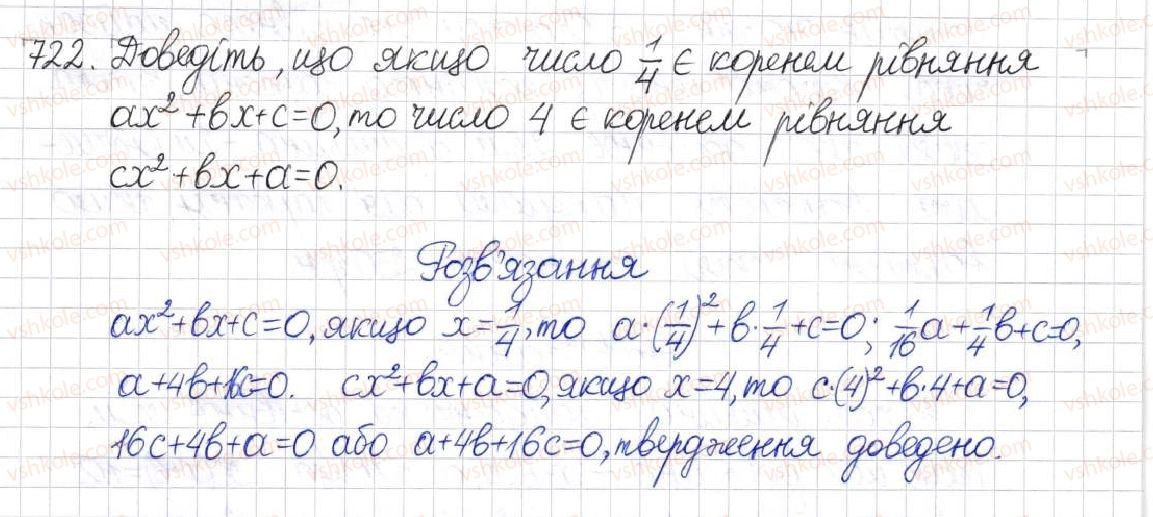 722. Доведіть, що якщо число 1/4 є коренем рівняння
ax²+bx+c=0, то число 4 є коренем рівняння
cx²+bx+a=0.
Розв'язання
ax²+bx+c=0, якщо x=1/4, то a·(1/4)²+b·1/4+c=0; 1/16a+1/4b+c=0,
a+4b+16c=0. cx²+bx+a=0, якщо x=4, то c·(4)²+b·4+a=0,
16c+4b+a=0 або a+4b+16c=0, твердження доведено.